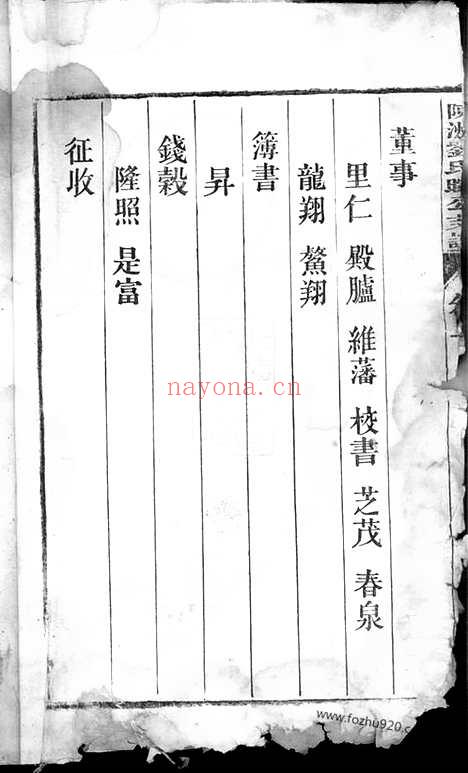 董事
里仁 殿臚 維藩 校書 芝茂 春泉
龍翔 鰲翔
簿書
昇
錢穀
隆照 是富
征收
nayona.cn
www.fozhu920.com